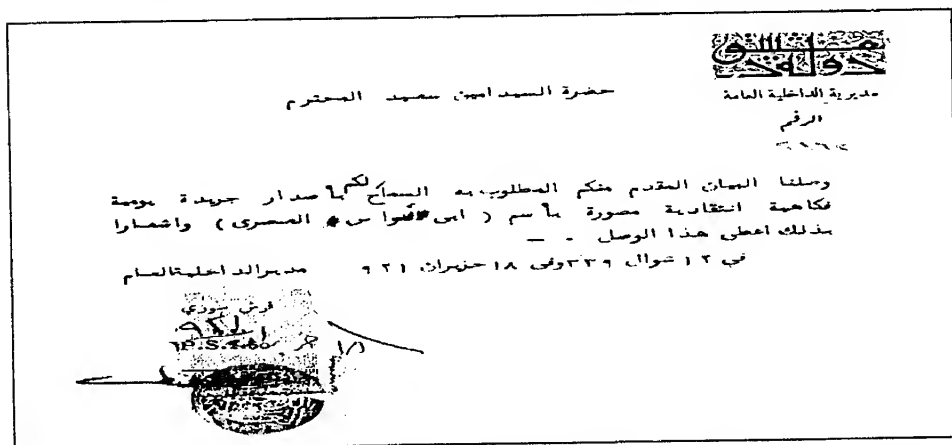 دولة دمشق
مديرية الداخلية العامة
الرقم
حضرة السيد امين سعيد المحترم
وصلنا البيان المقدم منكم المطلوب به السماح لكم باصدار جريدة يومية
فكاهية انتقادية مصورة باسم ( ابى نواس المصرى ) واشعارا
بذلك اعطى هذا الوصل . —
في ١٢ شوال ٣٣٩ وفى ١٨ حزيران ٩٢١
مدير الداخلية العام
قرش سوري
P.S.